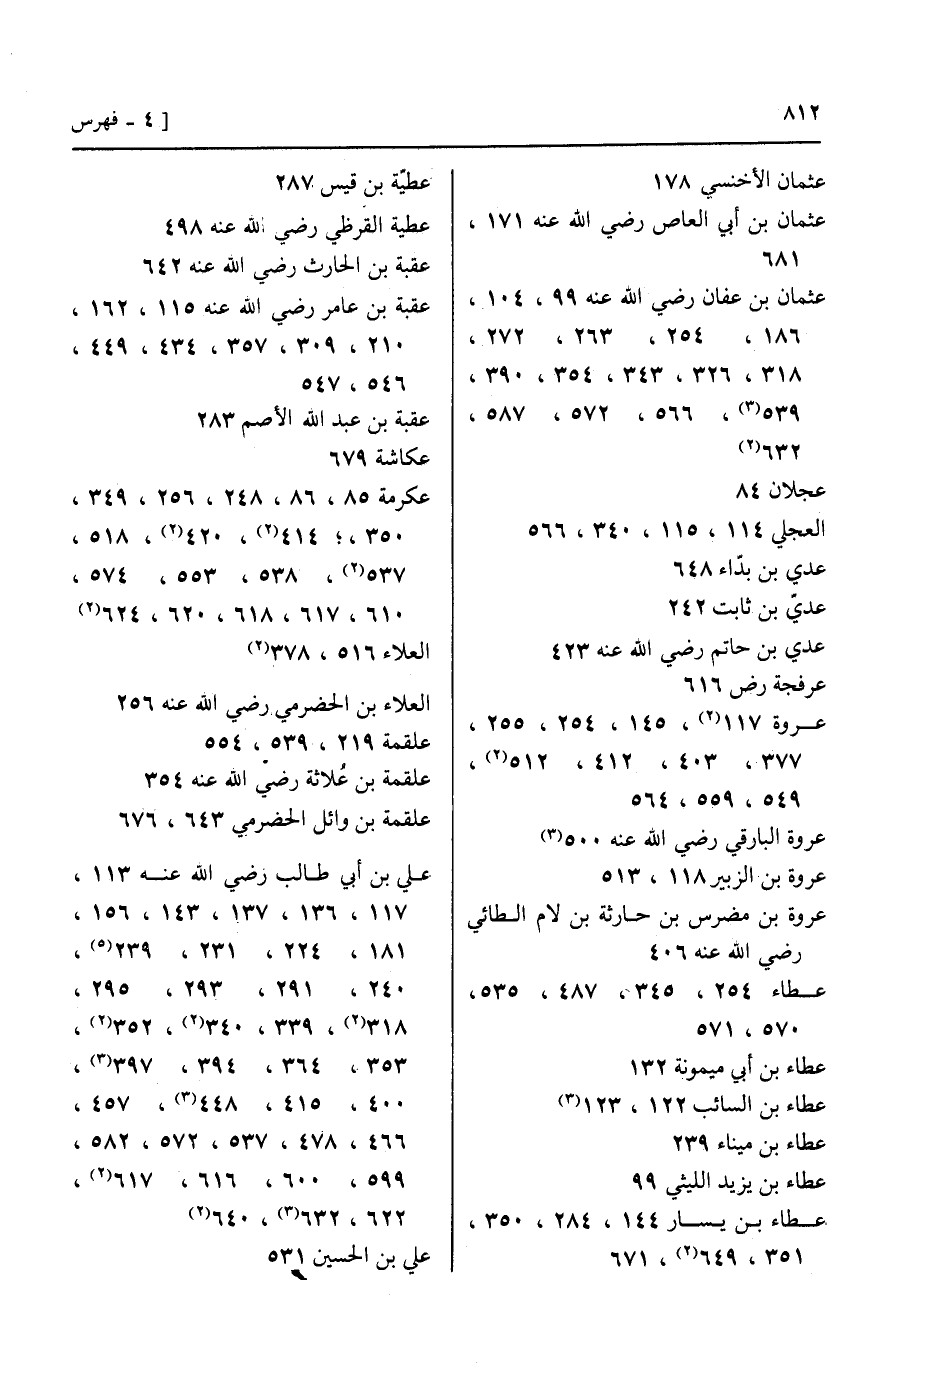 ٨١٢
[ ٤ - فهرس
عثمان الأخنسي ١٧٨
عثمان بن أبي العاص رضي الله عنه ١٧١ ،
٦٨١
عثمان بن عفان رضي الله عنه ٩٩ ، ١٠٤ ،
١٨٦ ، ٢٥٤ ، ٢٦٣ ، ٢٧٢ ،
٣١٨ ، ٣٢٦ ، ٣٤٣ ، ٣٥٤ ، ٣٩٠ ،
٥٣٩(٣) ، ٥٦٦ ، ٥٧٢ ، ٥٨٧ ،
٦٣٢(٢)
عجلان ٨٤
العجلي ١١٤ ، ١١٥ ، ٣٤٠ ، ٥٦٦
عدي بن بدّاء ٦٤٨
عديّ بن ثابت ٢٤٢
عدي بن حاتم رضي الله عنه ٤٢٣
عرفجة رض ٦١٦
عـروة ١١٧(٢) ، ١٤٥ ، ٢٥٤ ، ٢٥٥ ،
٣٧٧ ، ٤٠٣ ، ٤١٢ ، ٥١٢(٢) ،
٥٤٩ ، ٥٥٩ ، ٥٦٤
عروة البارقي رضي الله عنه ٥٠٠(٣)
عروة بن الزبير ١١٨ ، ٥١٣
عروة بن مضرس بن حـارثة بن لام الـطائي
رضي الله عنه ٤٠٦
عـطاء ٢٥٤ ، ٣٤٥ ، ٤٨٧ ، ٥٣٥ ،
٥٧٠ ، ٥٧١
عطاء بن أبي ميمونة ١٣٢
عطاء بن السائب ١٢٢ ، ١٢٣(٣)
عطاء بن ميناء ٢٣٩
عطاء بن يزيد الليثي ٩٩
عـطاء بـن يـسـار ١٤٤ ، ٢٨٤ ، ٣٥٠ ،
٣٥١ ، ٦٤٩(٢) ، ٦٧١
عطيّة بن قيس ٢٨٧
عطية القرظي رضي الله عنه ٤٩٨
عقبة بن الحارث رضي الله عنه ٦٤٢
عقبة بن عامر رضي الله عنه ١١٥ ، ١٦٢ ،
٢١٠ ، ٣٠٩ ، ٣٥٧ ، ٤٣٤ ، ٤٤٩ ،
٥٤٦ ، ٥٤٧
عقبة بن عبد الله الأصم ٢٨٣
عكاشة ٦٧٩
عكرمة ٨٥ ، ٨٦ ، ٢٤٨ ، ٢٥٦ ، ٣٤٩ ،
٣٥٠ ، ؛ ٤١٤(٢) ، ٤٢٠(٢) ، ٥١٨ ،
٥٣٧(٢) ، ٥٣٨ ، ٥٥٣ ، ٥٧٤ ،
٦١٠ ، ٦١٧ ، ٦١٨ ، ٦٢٠ ، ٦٢٤(٢)
العلاء ٥١٦ ، ٣٧٨(٢)
العلاء بن الحضرمي رضي الله عنه ٢٥٦
علقمة ٢١٩ ، ٥٣٩ ، ٥٥٤
علقمة بن عُلاثة رضي الله عنه ٣٥٤
علقمة بن وائل الحضرمي ٦٤٣ ، ٦٧٦
عـلي بن أبي طـالب رضي الله عنـه ١١٣ ،
١١٧ ، ١٣٦ ، ١٣٧ ، ١٤٣ ، ١٥٦ ،
١٨١ ، ٢٢٤ ، ٢٣١ ، ٢٣٩(٥) ،
٢٤٠ ، ٢٩١ ، ٢٩٣ ، ٢٩٥ ،
٣١٨(٢) ، ٣٣٩ ، ٣٤٠(٢) ، ٣٥٢(٢) ،
٣٥٣ ، ٣٦٤ ، ٣٩٤ ، ٣٩٧(٣) ،
٤٠٠ ، ٤١٥ ، ٤٤٨(٣) ، ٤٥٧ ،
٤٦٦ ، ٤٧٨ ، ٥٣٧ ، ٥٧٢ ، ٥٨٢ ،
٥٩٩ ، ٦٠٠ ، ٦١٦ ، ٦١٧(٢) ،
٦٢٢ ، ٦٣٢(٣) ، ٦٤٠(٢)
علي بن الحسين ٥٣١